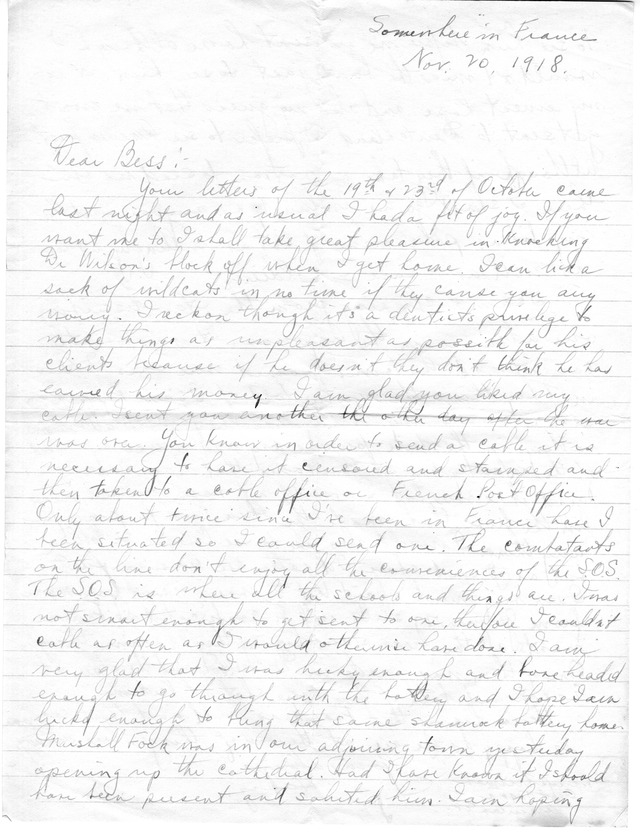 "Somewhere" in France
Nov. 20, 1918.
Dear Bess:-
Your letters of the 19th & 23rd of October came
last night and as usual I had a fit of joy. If you
want me to I shall take great pleasure in knocking
Dr Wilson's block off when I get home. I can lick a
sack of wildcats in no time if they cause you any
worry. I reckon though it's a dentists privilege to
make things as unpleasant as possible for his
clients because if he doesn't they don't think he has
earned his money. I am glad you liked my
cable. I sent you another the other day after the war
was over. You know in order to send a cable it is
necessary to have it censored and stamped and
then taken to a cable office or French Post Office.
Only about twice since I've been in France have I
been situated so I could send one. The combatants
on the line don't enjoy all the conveniences of the S.O.S.
The SOS is where all the schools and things are. I was
not smart enough to get sent to one, therefore I couldn't
cable as often as I would otherwise have done. I am
very glad that I was lucky enough and bone headed
enough to go through with the battery and I hope I am
lucky enough to bring that same shamrock battery home.
Marshall Foch was in our adjoining town yesterday
opening up the cathedral. Had I have known it I should
have been present and saluted him. I am hoping